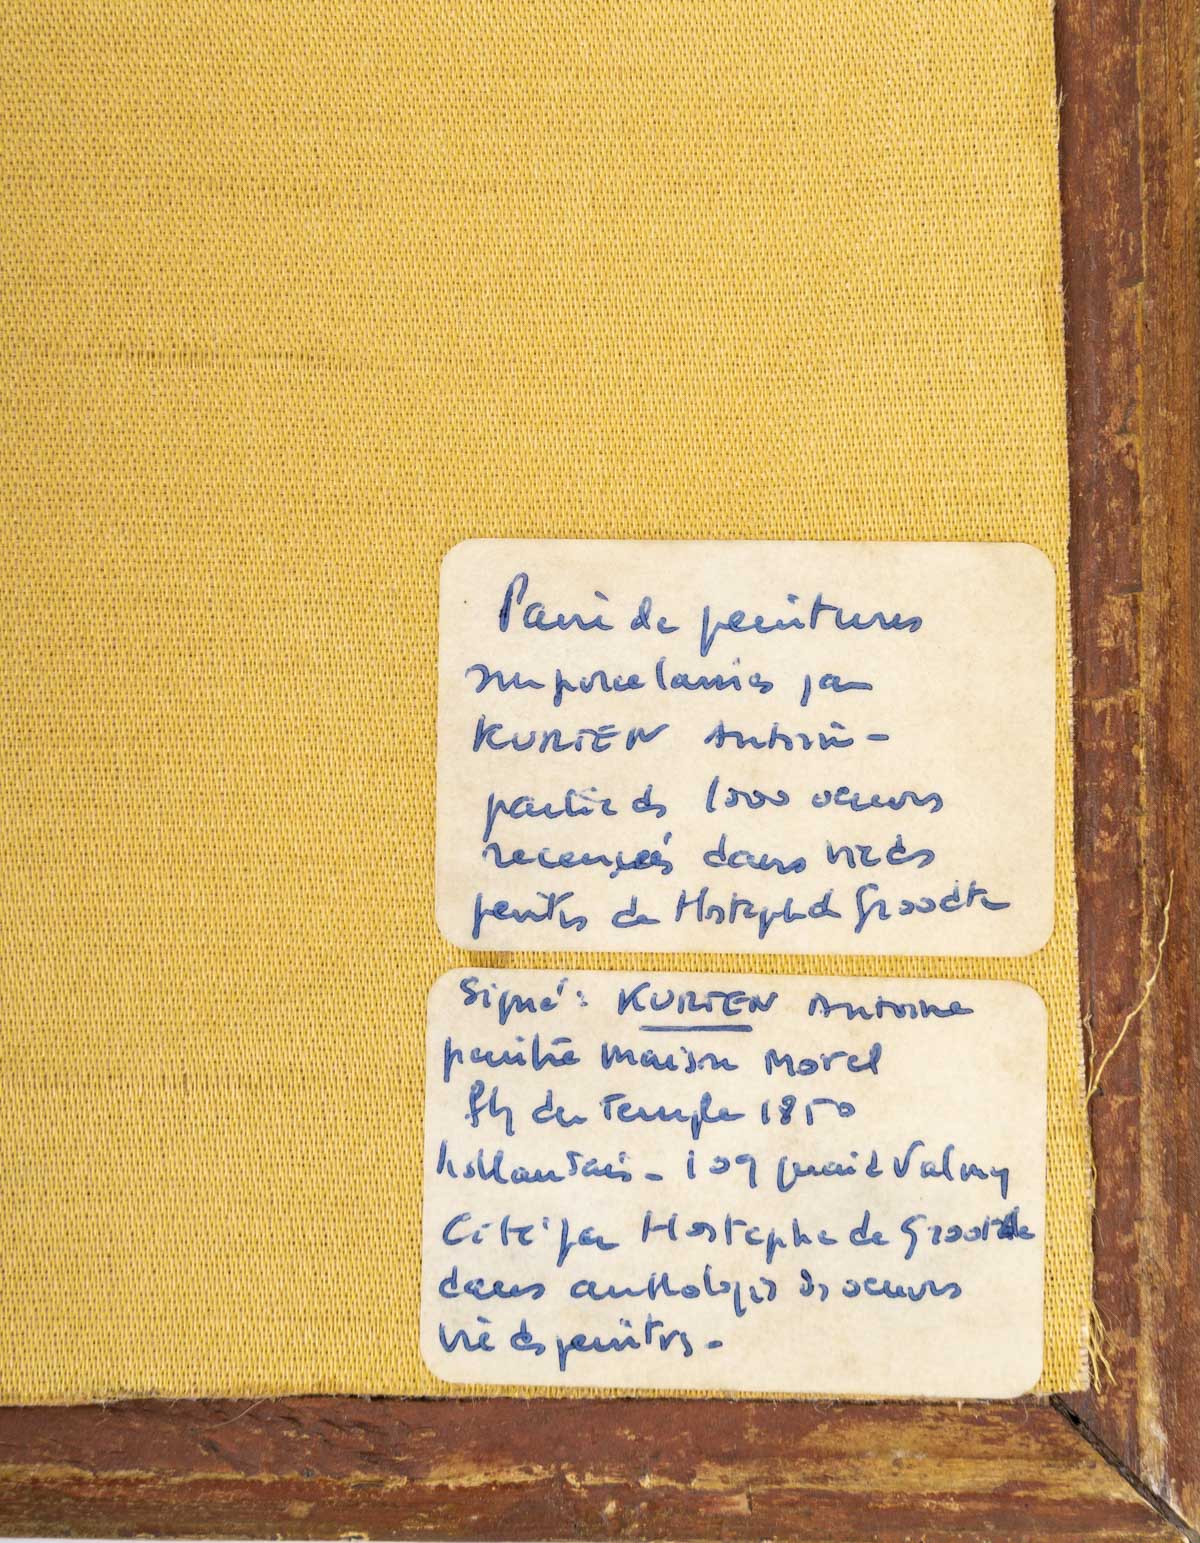 Paire de peintures
sur porcelaines par
KURTEN Antoine -
partie des 1000 oeuvres
recensées dans vie des
peintres de Hostephe de Groodte
Signé : KURTEN Antoine
peintre maison Morel
fg du Temple 1850
hollandais - 109 quai de Valmy
Cité par Hostephe de Groote
dans anthologie des oeuvres
vie des peintres -